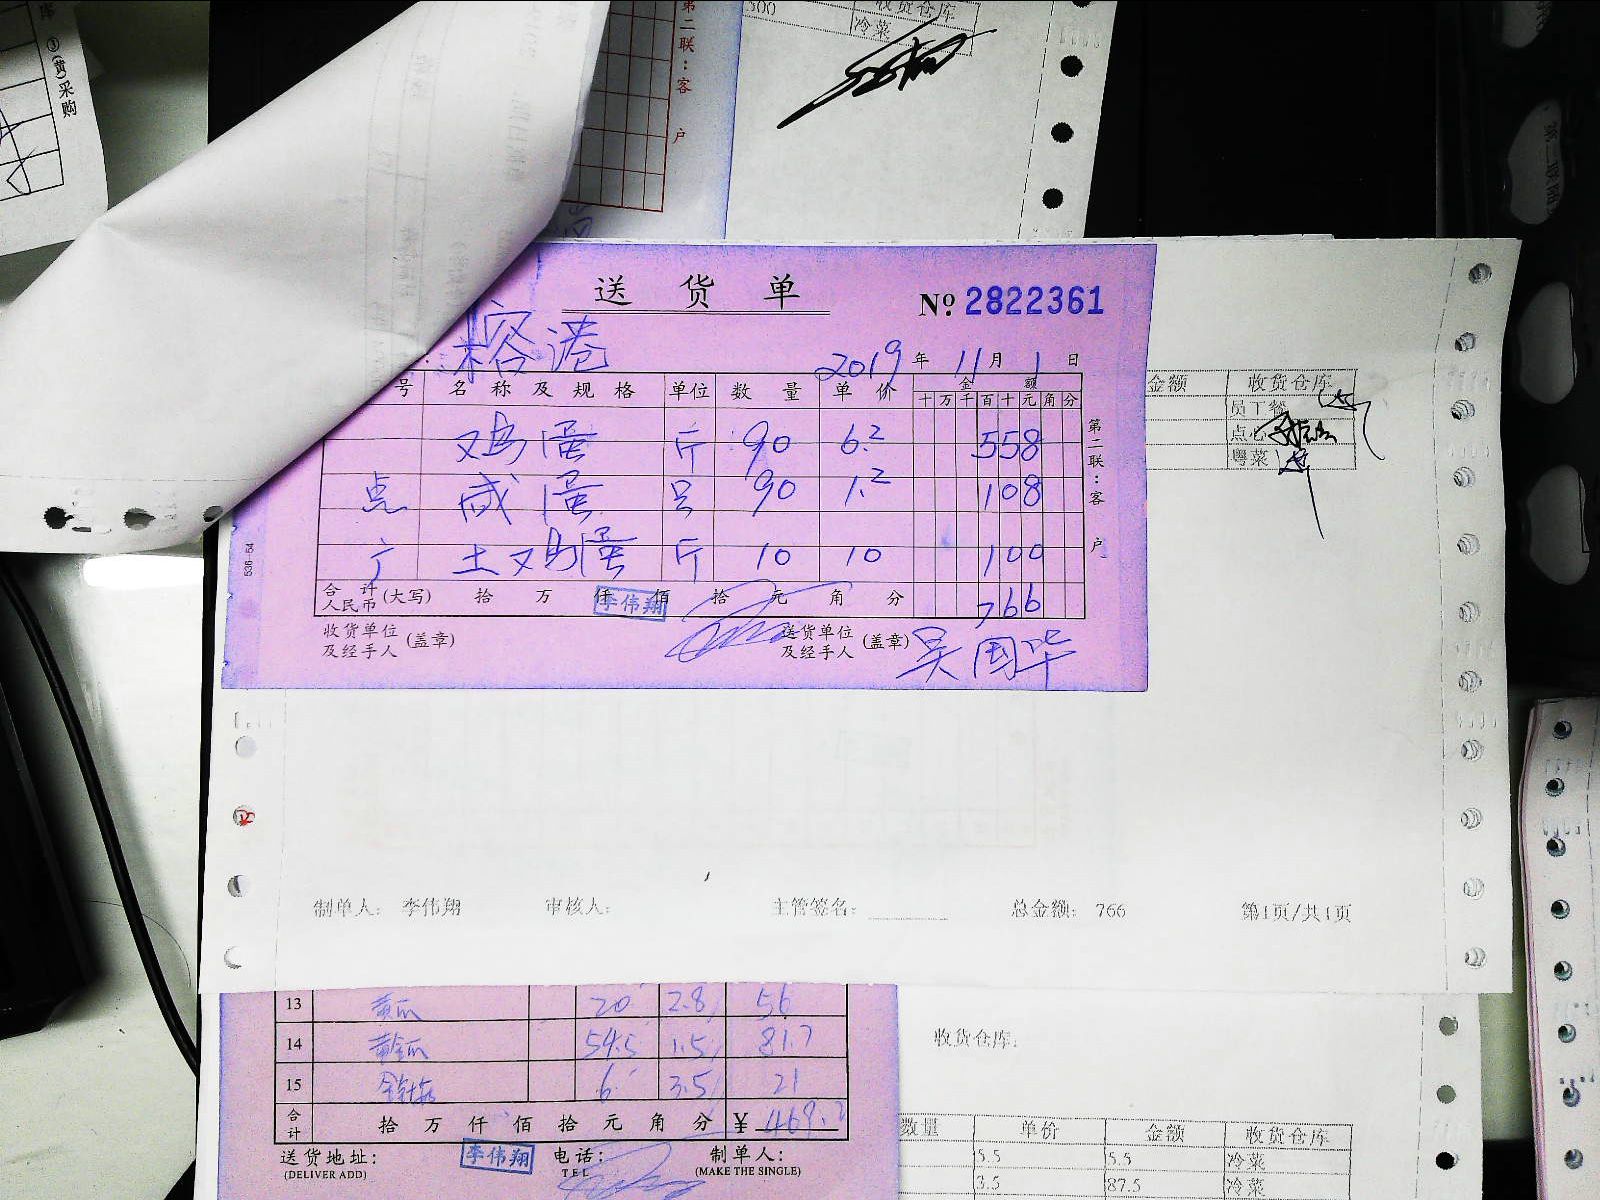 ③(黄)采购
第二联:客户
500 收货仓库
冷菜
送货单
№ 2822361
榕港
2019年11月1日
号 名称及规格 单位 数量 单价 金额
十万千百十元角分
鸡蛋 斤 90 6.2 558
点 咸蛋 只 90 1.2 108
广 土鸡蛋 斤 10 10 100
合计人民币(大写) 拾 万 仟 佰 拾 元 角 分 766
李伟翔
收货单位及经手人(盖章) 送货单位及经手人(盖章) 吴国华
第二联:客户
536-54
金额 收货仓库
员工餐
点心
粤菜
制单人: 李伟翔 审核人: 主管签名: 总金额: 766 第1页/共1页
13 黄瓜 20 2.8 56
14 黄金瓜 54.5 1.5 81.7
15 6 3.5 21
合计 拾 万 仟 佰 拾 元 角 分 ¥ 469.2
送货地址: 李伟翔 电话: 制单人:
(DELIVER ADD) TEL (MAKE THE SINGLE)
收货仓库:
数量 单价 金额 收货仓库
5.5 5.5 冷菜
3.5 87.5 冷菜